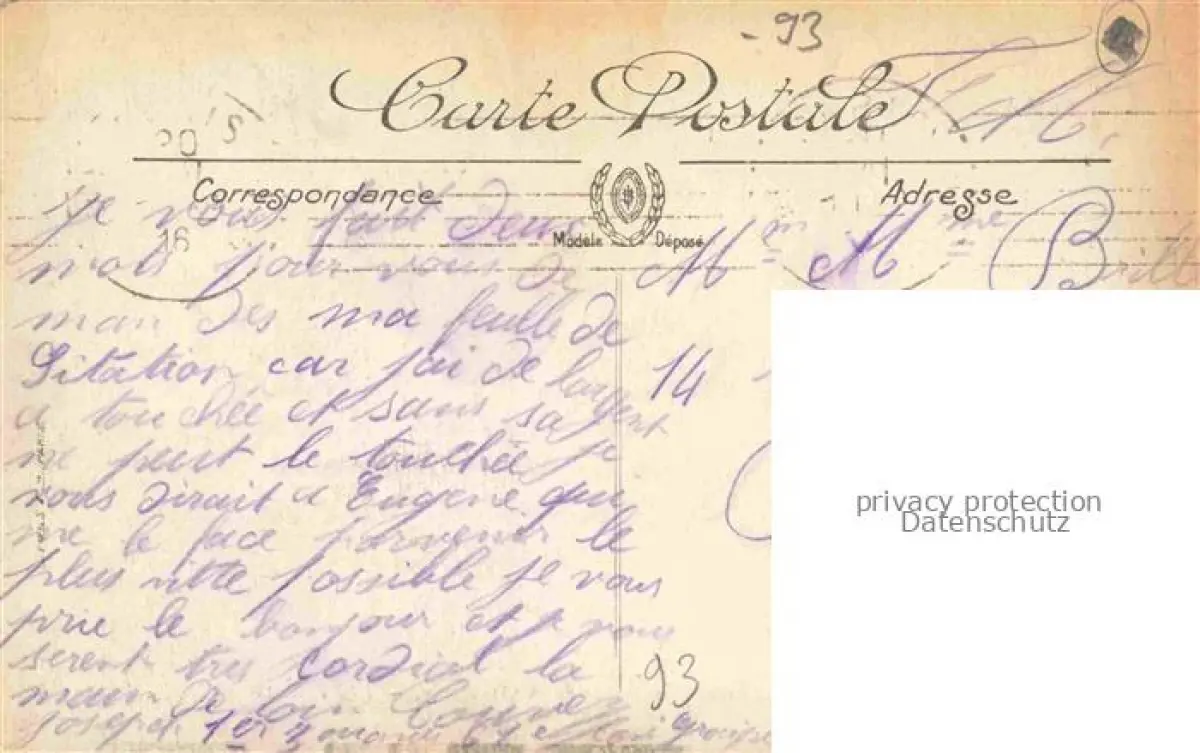 - 93
Carte Postale
F. M.
Correspondance
Adresse
Modèle Déposé
16
je vous fait deux
mots pour vous de
man des ma feuille de
Sitation car jai de largent
a touchée et sans sa je
ne peut le touchée je
vous dirait a Eugene qui
me le face parvenir le
plus vitte possible je vous
prie le bonjour et je vous
serent tres cordial la
main de loin
Joseph 1er
groupe
Mm Mme
14
93
privacy protection
Datenschutz